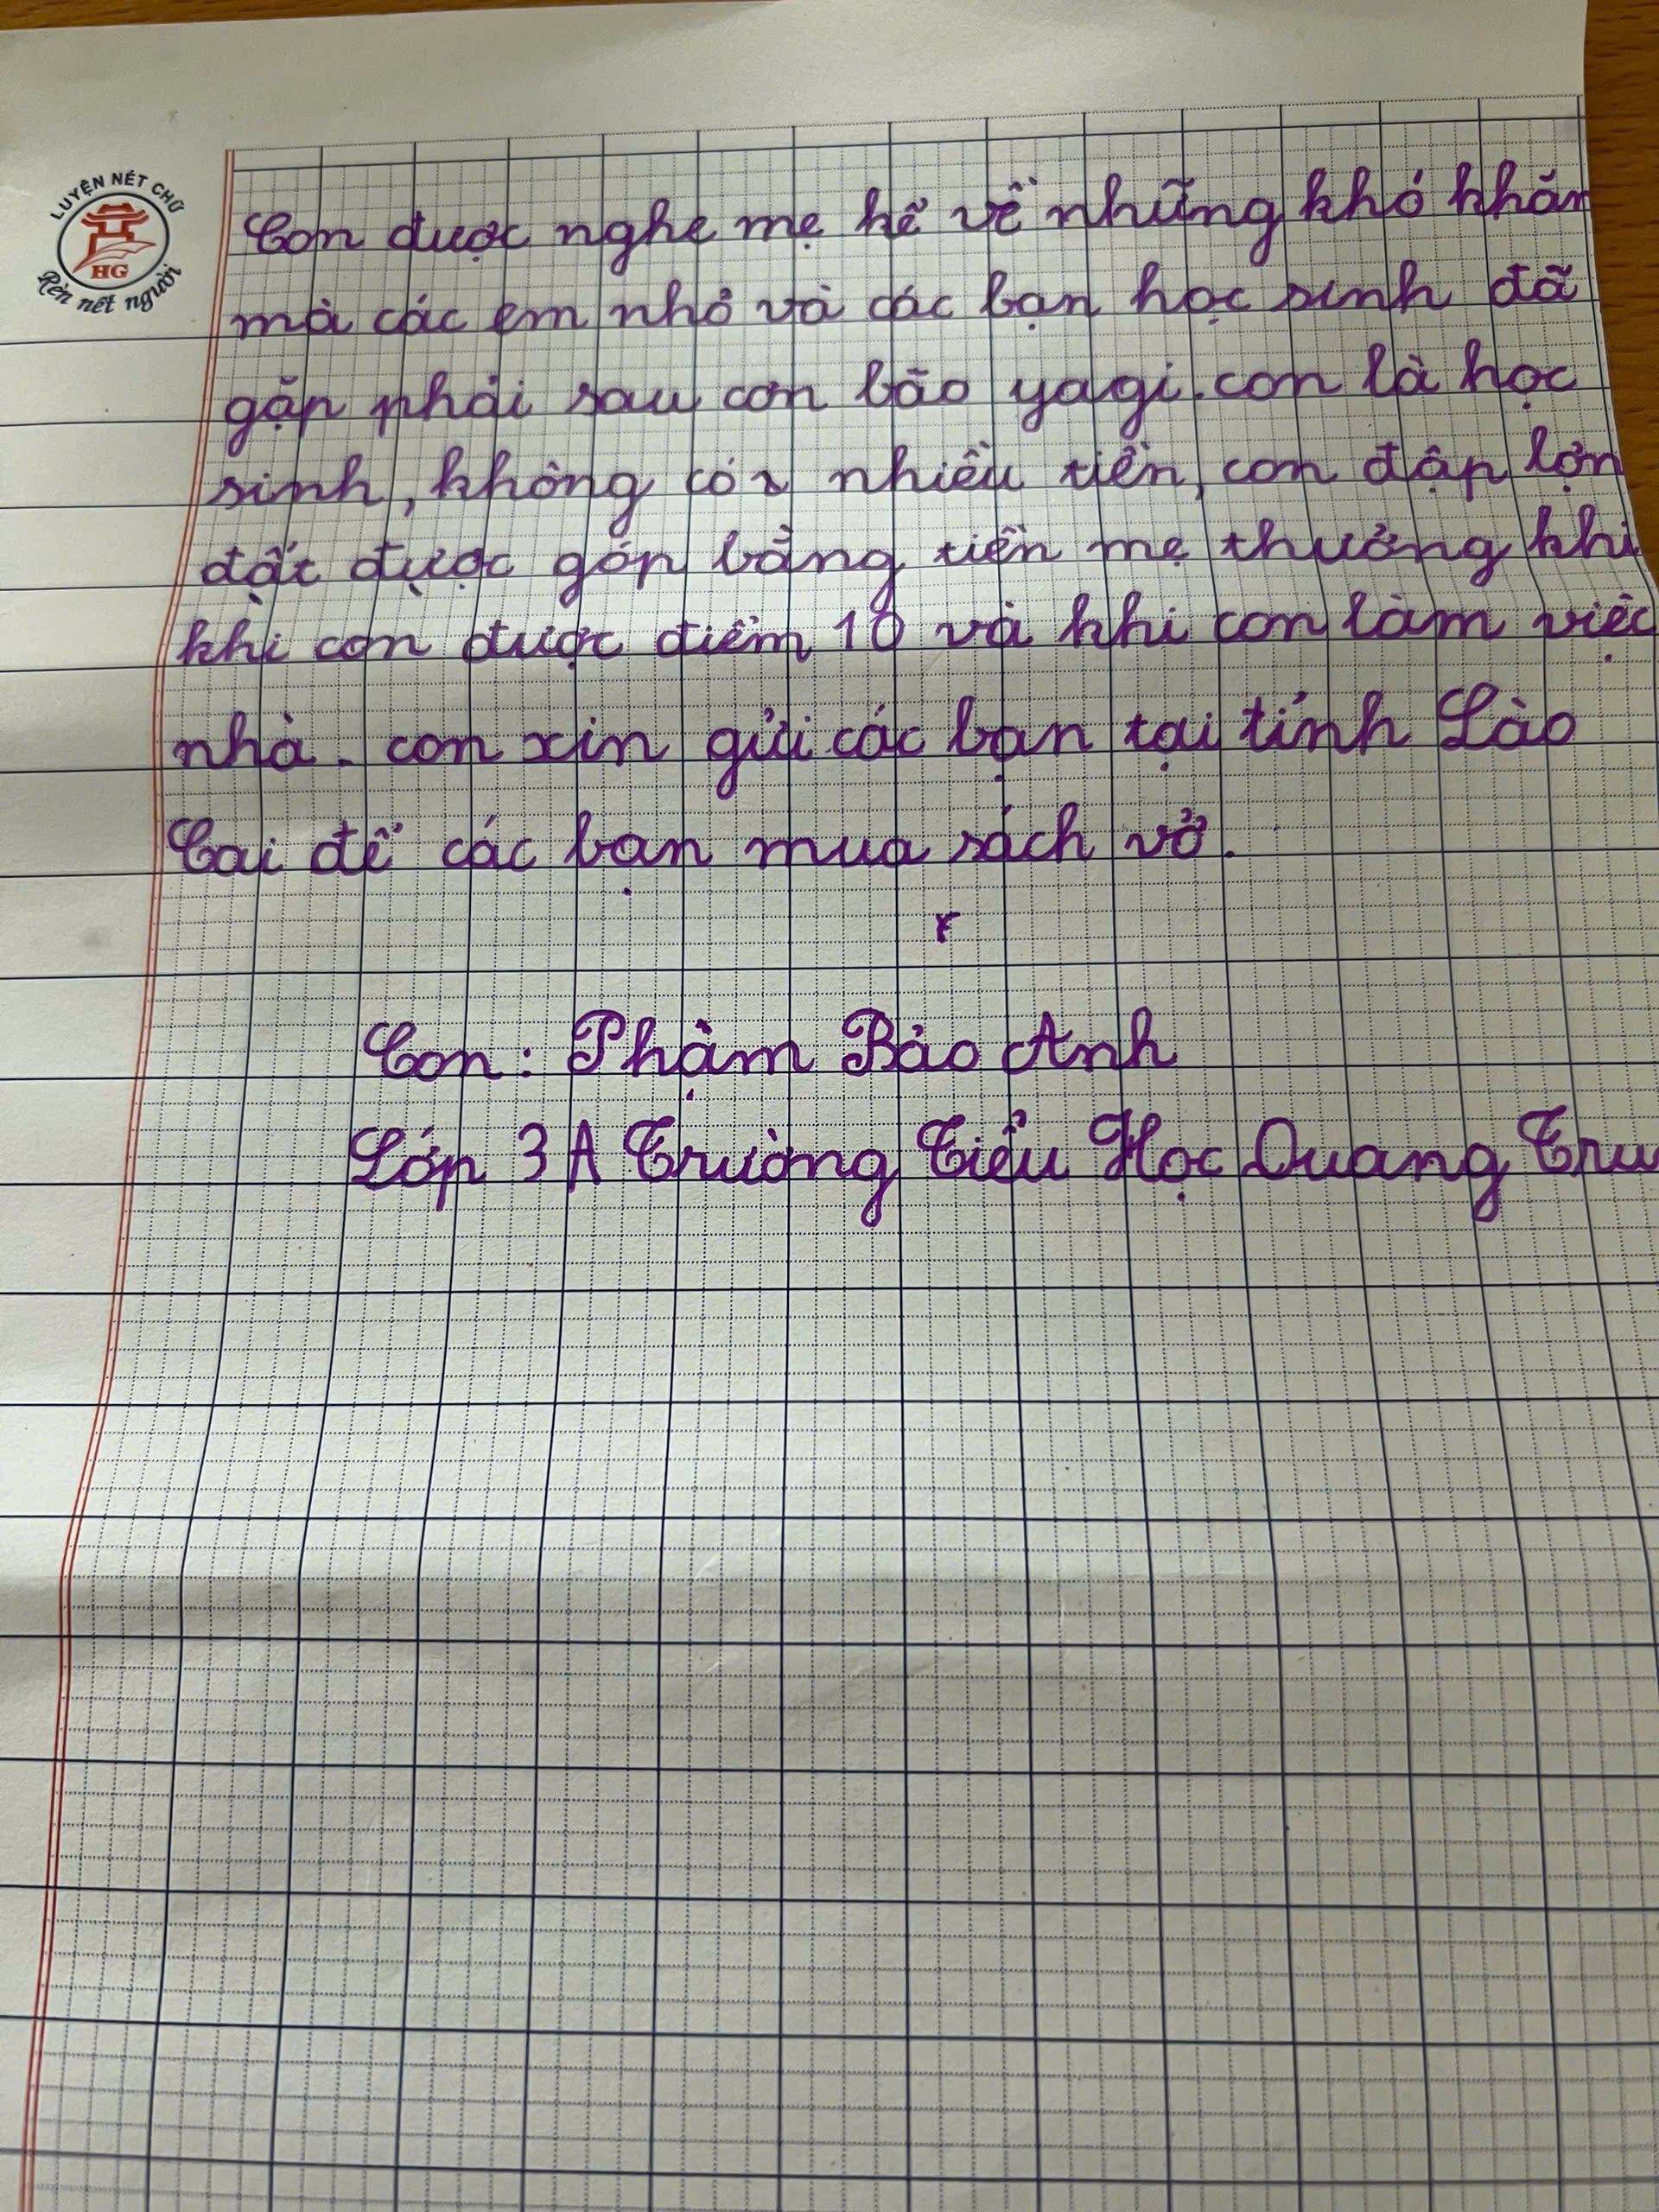 LUYỆN NÉT CHỮ
HG
Rèn nết người
Con được nghe mẹ kể về những khó khăn
mà các em nhỏ và các bạn học sinh đã
gặp phải sau cơn bão yagi. con là học
sinh, không có nhiều tiền, con đập lợn
đất được góp bằng tiền mẹ thưởng khi
khi con được điểm 10 và khi con làm việc
nhà. con xin gửi các bạn tại tỉnh Lào
Cai để các bạn mua sách vở.
Con: Phạm Bảo Anh
Lớp 3A Trường Tiểu Học Quang Tru